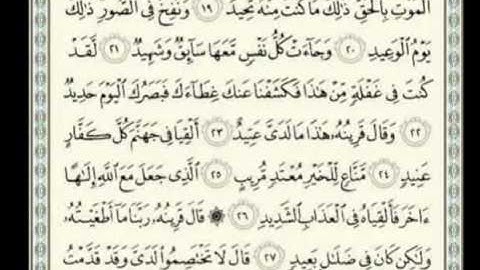 ٱلْمَوْتِ بِٱلْحَقِّ ذَٰلِكَ مَا كُنتَ مِنْهُ تَحِيدُ ١٩ وَنُفِخَ فِى ٱلصُّورِ ذَٰلِكَ
يَوْمُ ٱلْوَعِيدِ ٢٠ وَجَآءَتْ كُلُّ نَفْسٍ مَّعَهَا سَآئِقٌ وَشَهِيدٌ ٢١ لَّقَدْ
كُنتَ فِى غَفْلَةٍ مِّنْ هَٰذَا فَكَشَفْنَا عَنكَ غِطَآءَكَ فَبَصَرُكَ ٱلْيَوْمَ حَدِيدٌ
٢٢ وَقَالَ قَرِينُهُۥ هَٰذَا مَا لَدَىَّ عَتِيدٌ ٢٣ أَلْقِيَا فِى جَهَنَّمَ كُلَّ كَفَّارٍ
عَنِيدٍ ٢٤ مَّنَّاعٍ لِّلْخَيْرِ مُعْتَدٍ مُّرِيبٍ ٢٥ ٱلَّذِى جَعَلَ مَعَ ٱللَّهِ إِلَٰهًا
ءَاخَرَ فَأَلْقِيَاهُ فِى ٱلْعَذَابِ ٱلشَّدِيدِ ٢٦ ۞ قَالَ قَرِينُهُۥ رَبَّنَا مَآ أَطْغَيْتُهُۥ
وَلَٰكِن كَانَ فِى ضَلَٰلٍۭ بَعِيدٍ ٢٧ قَالَ لَا تَخْتَصِمُوا۟ لَدَىَّ وَقَدْ قَدَّمْتُ